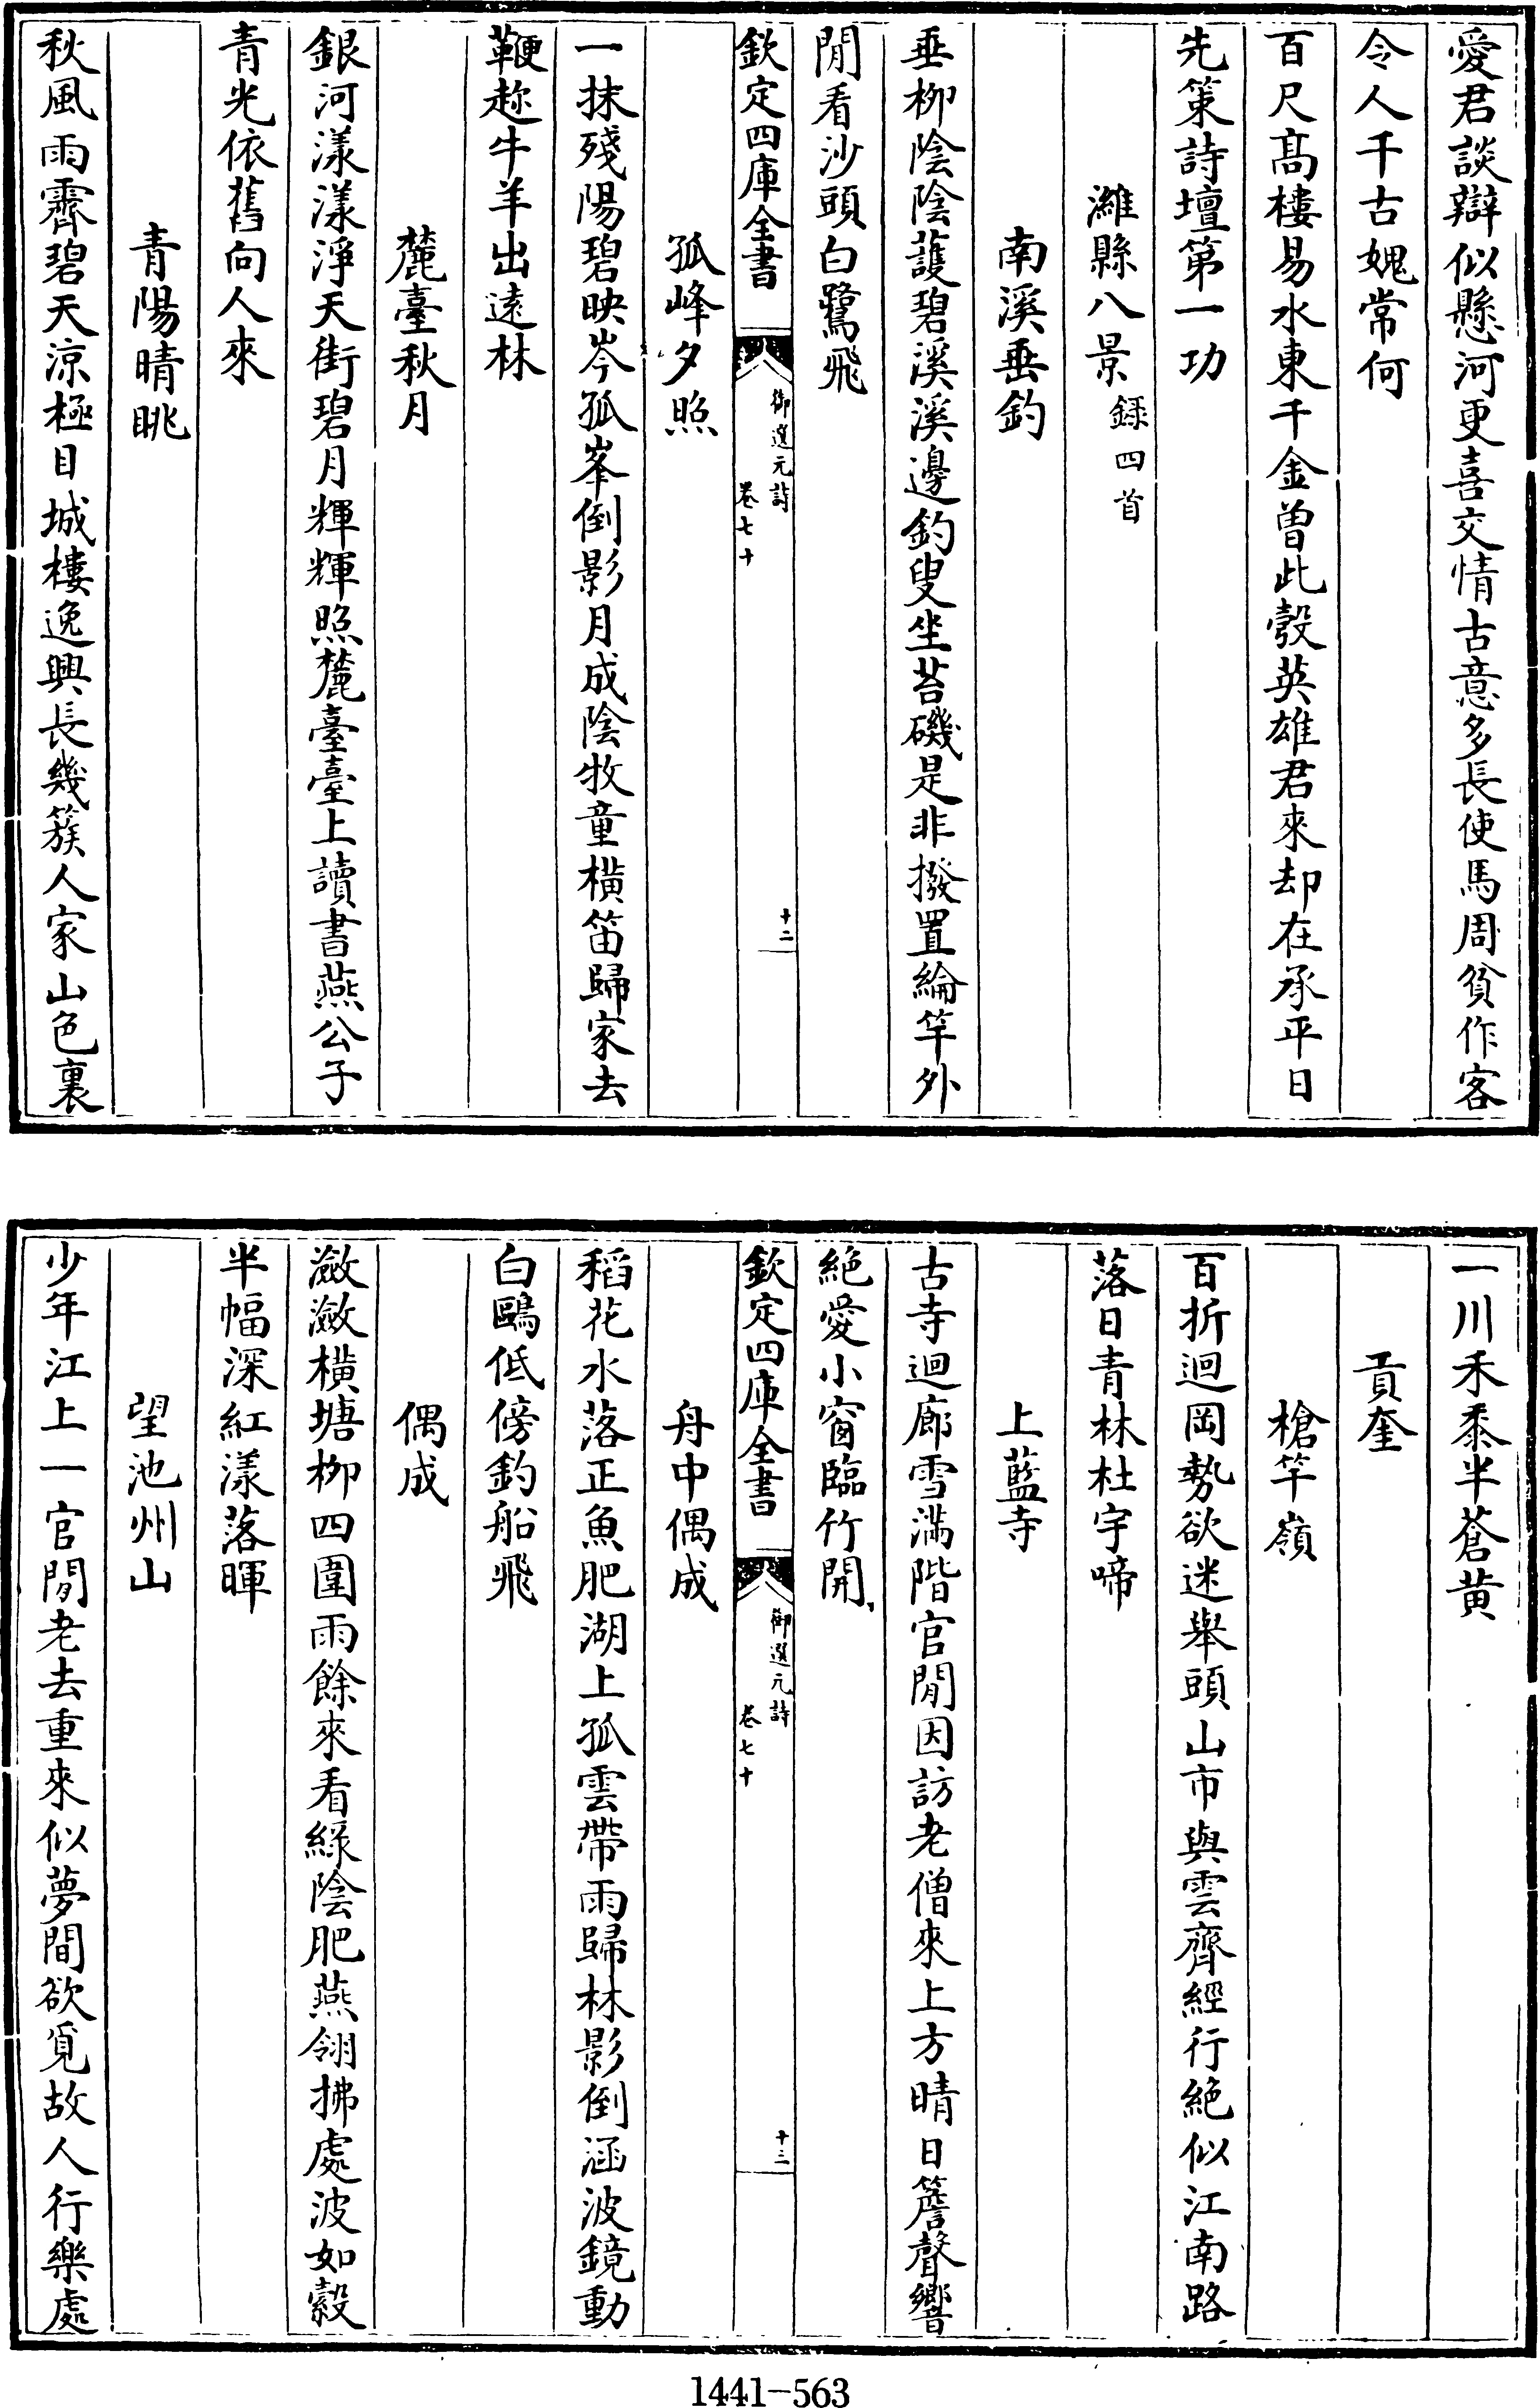 愛君談辯似懸河更喜交情古意多長使馬周貧作客
令人千古媿常何
百尺髙樓易水東千金曽此彀英雄君來却在承平日
先策詩壇第一功
濰縣八景錄四首
南溪垂釣
垂柳陰陰護碧溪溪邊釣叟坐苔磯是非撥置綸竿外
閒看沙頭白鷺飛
欽定四庫全書
御選元詩
卷七十
十二
孤峰夕照
一抹殘陽碧映岑孤峯倒影月成陰牧童橫笛歸家去
鞭趂牛羊出遠林
麓臺秋月
銀河漾漾淨天街碧月輝輝照麓臺臺上讀書燕公子
青光依舊向人來
青陽晴眺
秋風雨霽碧天涼極目城樓逸興長幾簇人家山色裏
一川禾黍半蒼黄
貢奎
槍竿嶺
百折迴岡勢欲迷舉頭山市與雲齊經行絶似江南路
落日青林杜宇啼
上藍寺
古寺迴廊雪滿階官閒因訪老僧來上方晴日簷聲響
絶愛小窗臨竹開
欽定四庫全書
御選元詩
卷七十
十三
舟中偶成
稻花水落正魚肥湖上孤雲帶雨歸林影倒涵波鏡動
白鷗低傍釣船飛
偶成
瀲瀲橫塘栁四圍雨餘來看綠陰肥燕翎拂處波如縠
半幅深紅漾落暉
望池州山
少年江上一官閒老去重來似夢間欲覓故人行樂處
1441-563